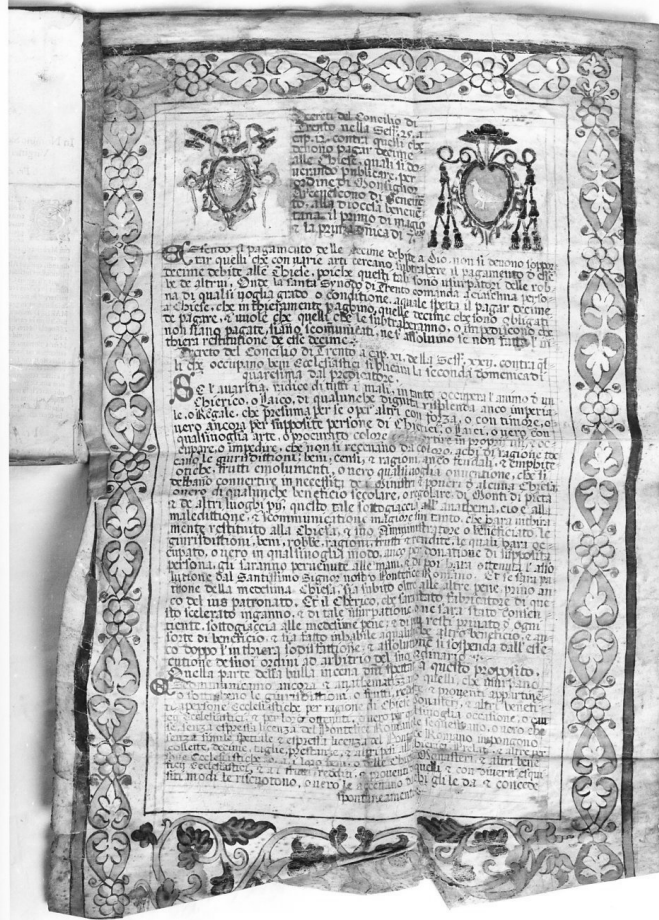 Decreti del Concilio di
Trento nella Sess. 25. a
cap. 12. contra quelli che
devono pagar decime
alle Chiese, quali si do
veranno publicare, per
ordine di Monsignor
Arcivescovo di Beneven
to, alla diocesa beneven
tana, il primo di magio
& la prima dnica di
Essendo il pagamento delle decime debite a Dio, non si devono soppor
tar quelli che con varie arti cercano subtrahere il pagamento d esse
decime debite alle Chiese, poiche questi tali sono usurpatori delle rob
be de altrui, Onde la santa Synodo di Trento comanda a ciascna perso
na di qualsi voglia grado o conditione, a quale speta il pagar decime
a Chiese, che intieramente paghino, quelle decime che sono obligati
de pagare, & vuole che quelli che le subtraheranno, o impediscono che
non siano pagate, siano scomunicati, ne s' assolvino se non fatta l' in
thiera restitutione de esse decime
Decreto del Concilio di Trento a cap. xi. della Sess. xxii. contra q̃l
li che occupano beni Ecclesiastici si publica la seconda domenica di
quaresima dal predicatore.
Se l' avaritia, radice di tutti i mali, in tante occuperà l' animo d un
Chierico, o Laico, di qualunche dignità risplenda anco imperia
le, o Regale, che presuma per se o per altri con forza, o con timore, o
vero ancora per supposite persone di Chierici, o laici, o vero con
qualsivoglia arte, o procurato colore convertire in proprii usi, & oc
cupare, o impedire, che non si receviano da coloro, a chi di ragione toc
cano le giurisdittioni, beni, censi, & ragioni, anco feudali, & emphite
otiche, frutti emolumenti, o vero qualsivoglia
debbano convertire in necessità de Ministri & poveri d alcuna Chiesa,
overo di qualunche beneficio secolare, o regolare, di Monti di pietà
& de altri luoghi pii, questo tale sottogiaccia all' anathema, cio e alla
maledittione, & scommunicatione magiore fin tanto, che harà inthiera
mente restituito alla Chiesa, & suo Amministratore o beneficiato, le
giurisdittioni, beni, robbe, ragioni, frutti & rendite, le quali harà oc
cupato, o vero in qualsivoglia modo, anco per donatione di supposita
persona, gli saranno pervenute alle mani, & di poi harà ottenuta l' asso
lutione dal Santissimo Signor nostro Pontefice Romano. Et se sarà pa
trone della medesima Chiesa, sia subito oltre alle altre pene, privo an
co del ius patronato. Et il Cherico, che sarà stato fabricatore di que
sto scelerato inganno, & di tale usurpatione, o ne sarà stato consen
tiente, sottogiaccia alle medesime pene: & di più resti privato d ogni
sorte di beneficio, & sia fatto inhabile a qualunche altro beneficio, & an
co doppo l' inthiera sodisfattione, & assolutione si sospenda dall' esse
cutione de suoi ordini ad arbitrio del suo Ordinario
Quella parte della bulla in cena dnĩ spetta a questo proposito.
Scommunicamo ancora & anathematizamo quelli, che usurpano
o sottraheno le giurisdittioni, o frutti, & proventi appartinen
ti a persone Ecclesiastiche per ragione di Chiese, Monasteri, & altri benefi
cii Ecclesiastici, & per loro ottenuti, o vero per qualsivoglia occasione, o cau
sa, senza espressa licenza del Pontefice Romano sequestrano, o vero che
senza simile spetiale & espressa licenza del Pontefice Romano impongono
collette, decime, taglie, prestanze, & altri pesi alli Chierici, Prelati, & altre per
sone Ecclesiastiche, o a i loro beni, o delle Chiese, Monasteri, & altri bene
ficii Ecclesiastici, & a i frutti, redditi, & proventi quelli & con diversi esqui
siti modi le riscuotono, o vero le recevano da chi gli le da & concede
spontaneamente